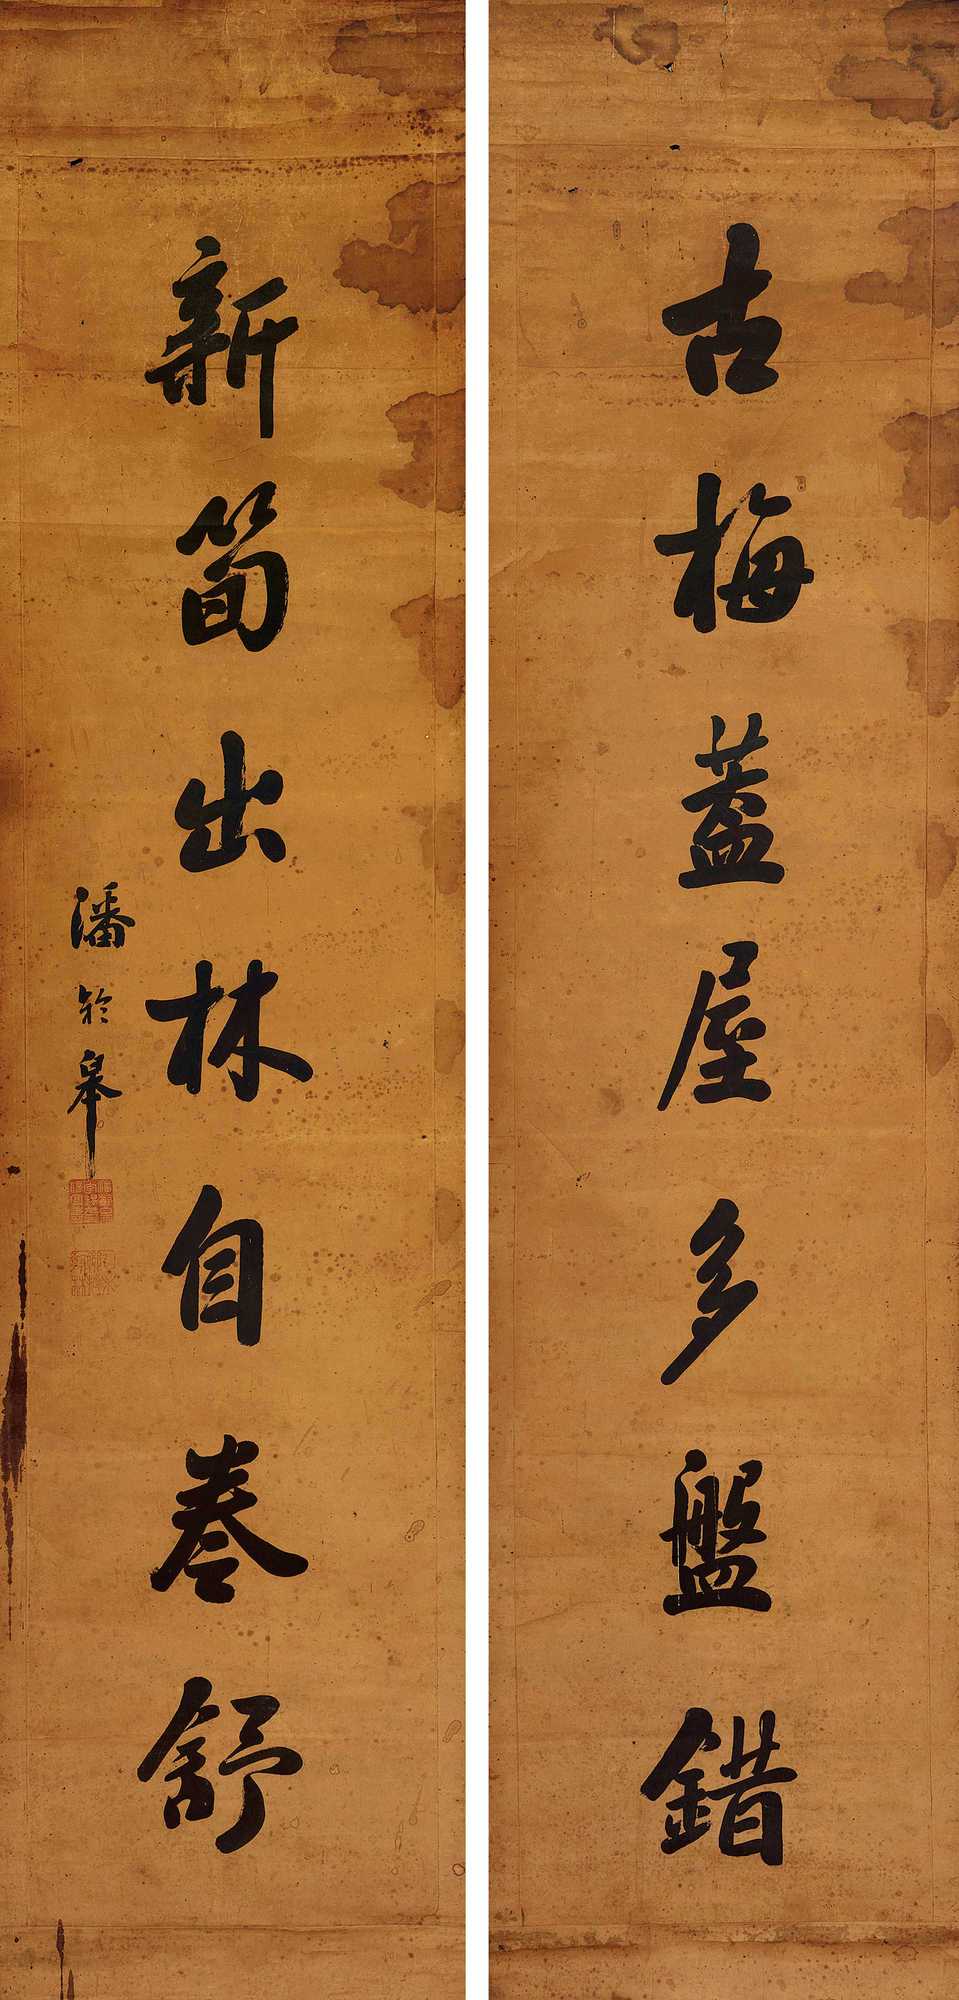 古梅蓋屋多盤錯
新筍出林自卷舒
潘於皋